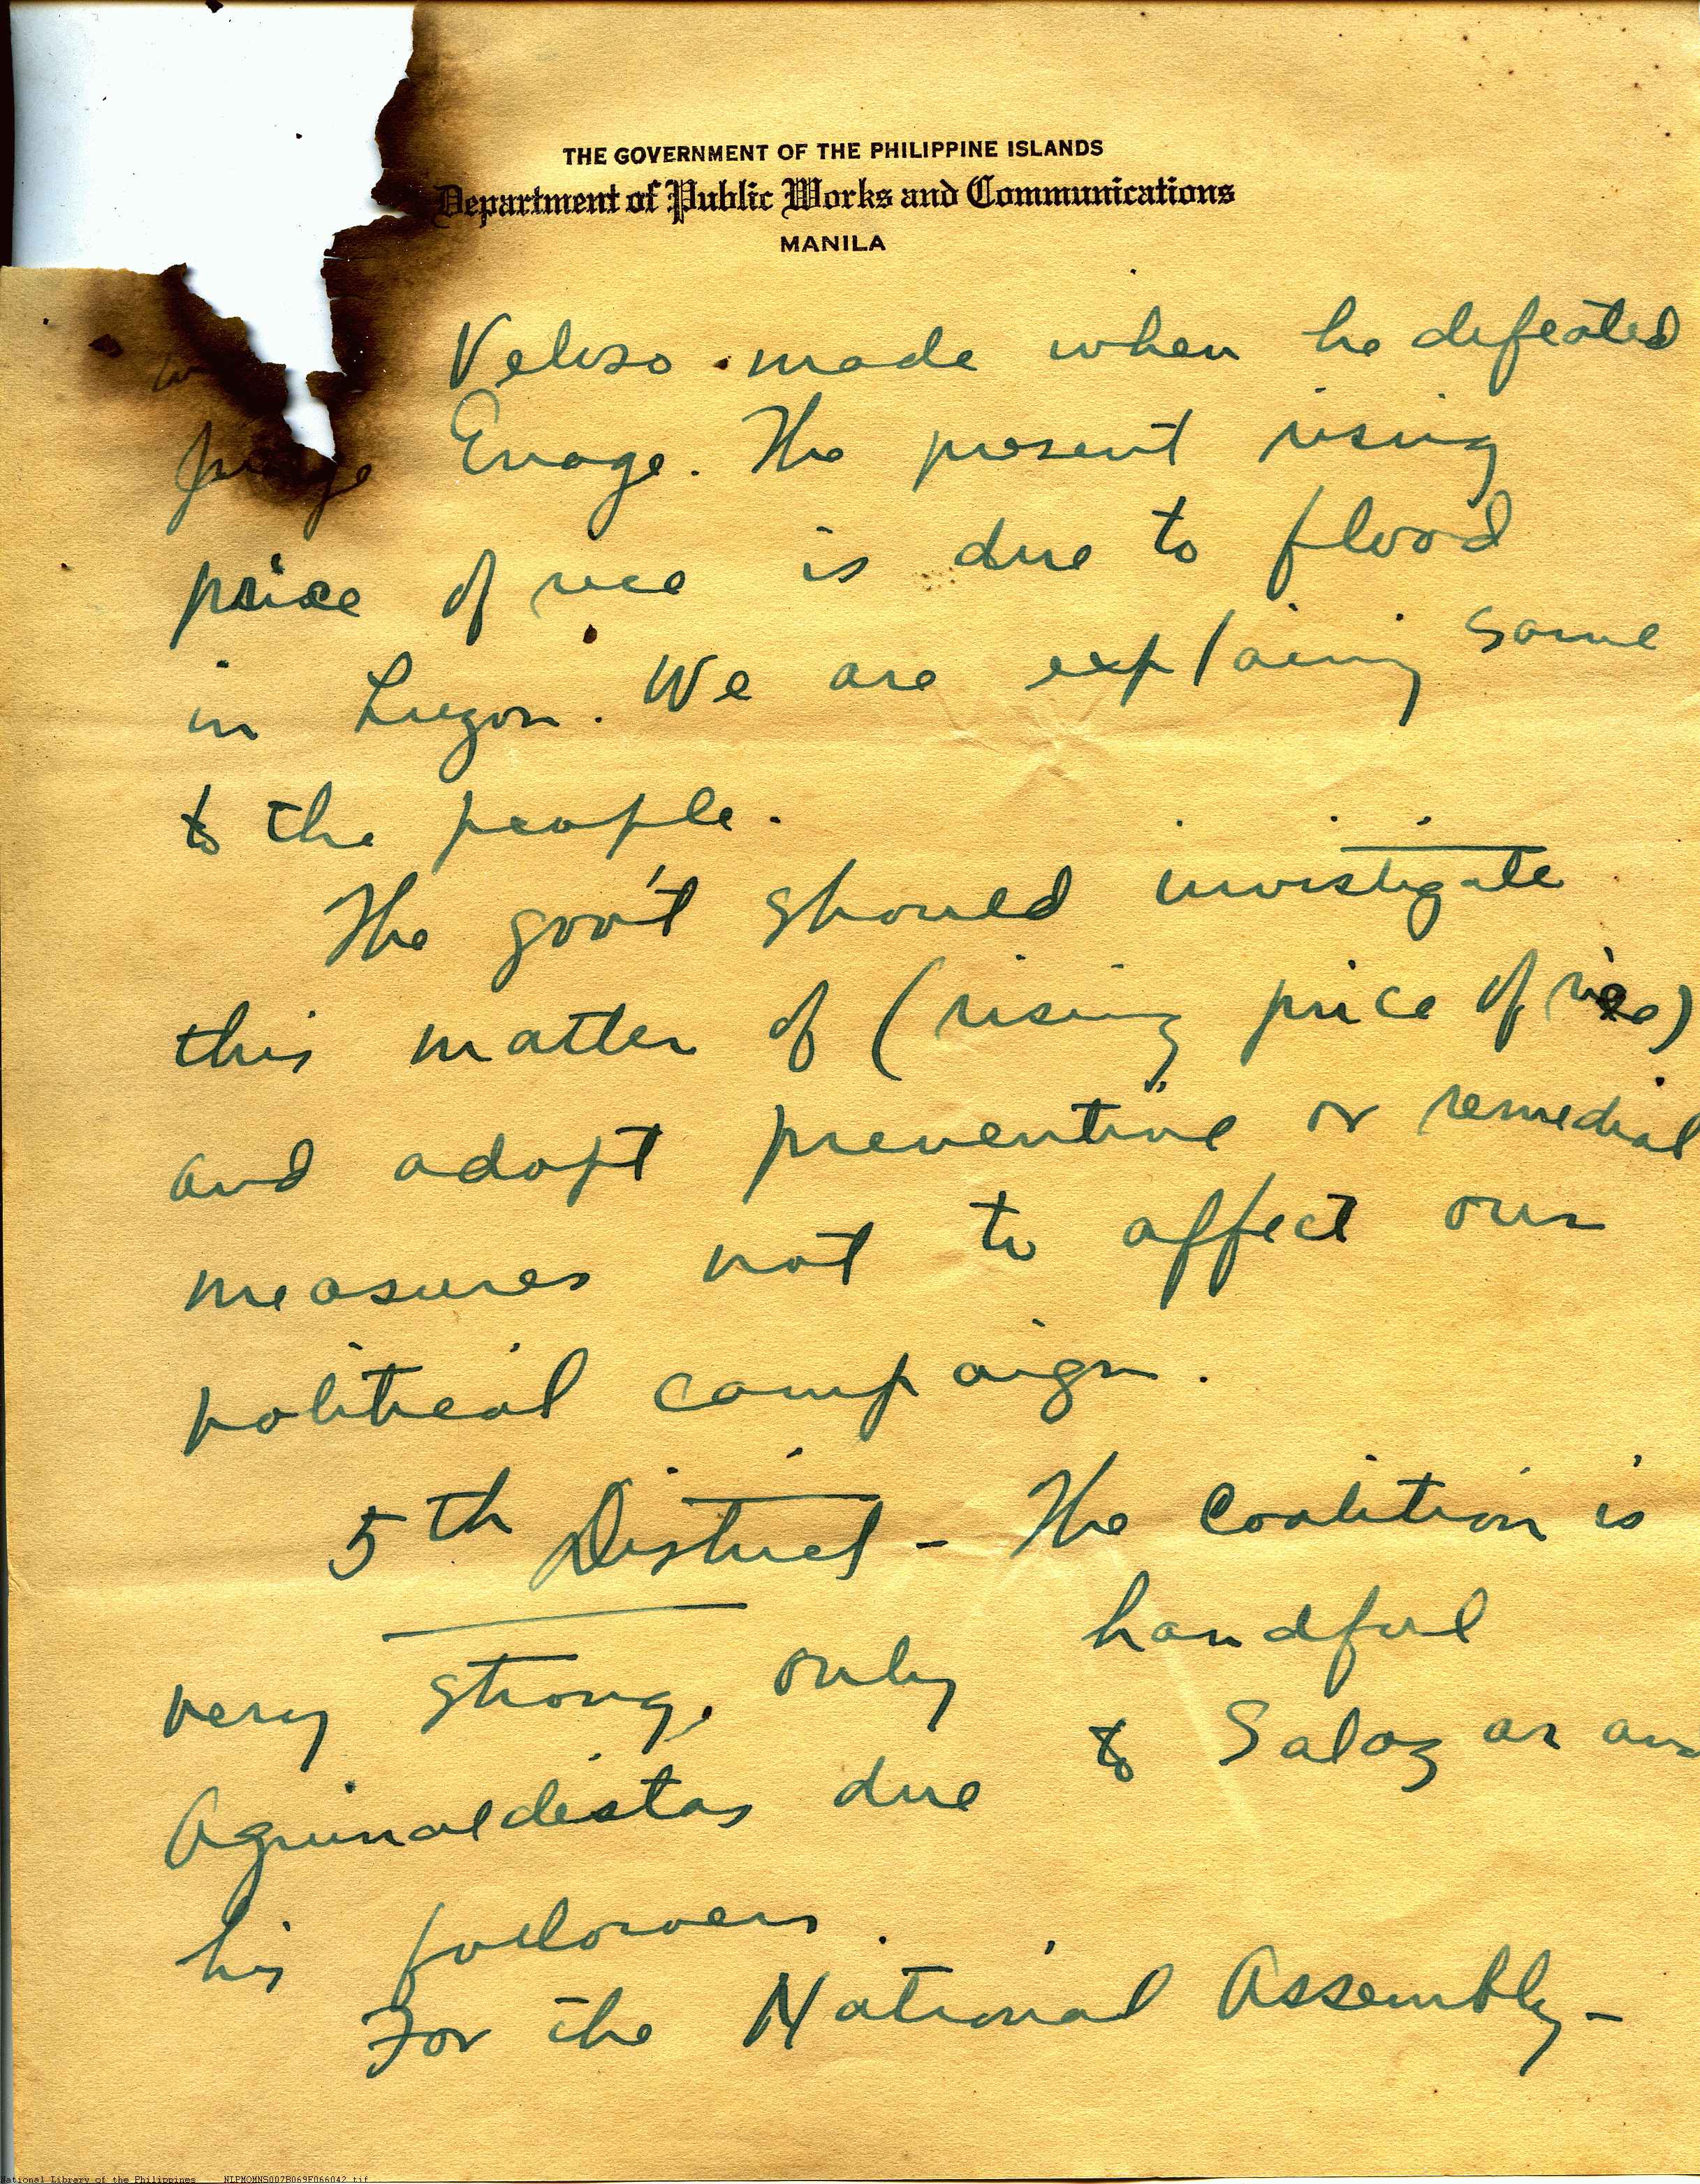 THE GOVERNMENT OF THE PHILIPPINE ISLANDS
Department of Public Works and Communications
MANILA
Veloso made when he defeated
Judge Enage. The present rising
price of rice is due to flood
in Luzon. We are explaining same
to the people.
The gov't should investigate
this matter of (rising price of rice)
and adopt preventive or remedial
measures not to affect our
political campaign.
5th District - The Coalition is
very strong, only handful
Aguinaldistas due to Salazar and
his followers.
For the National Assembly-
National Library of the Philippines NLPMOMNS007B069F066042.tif